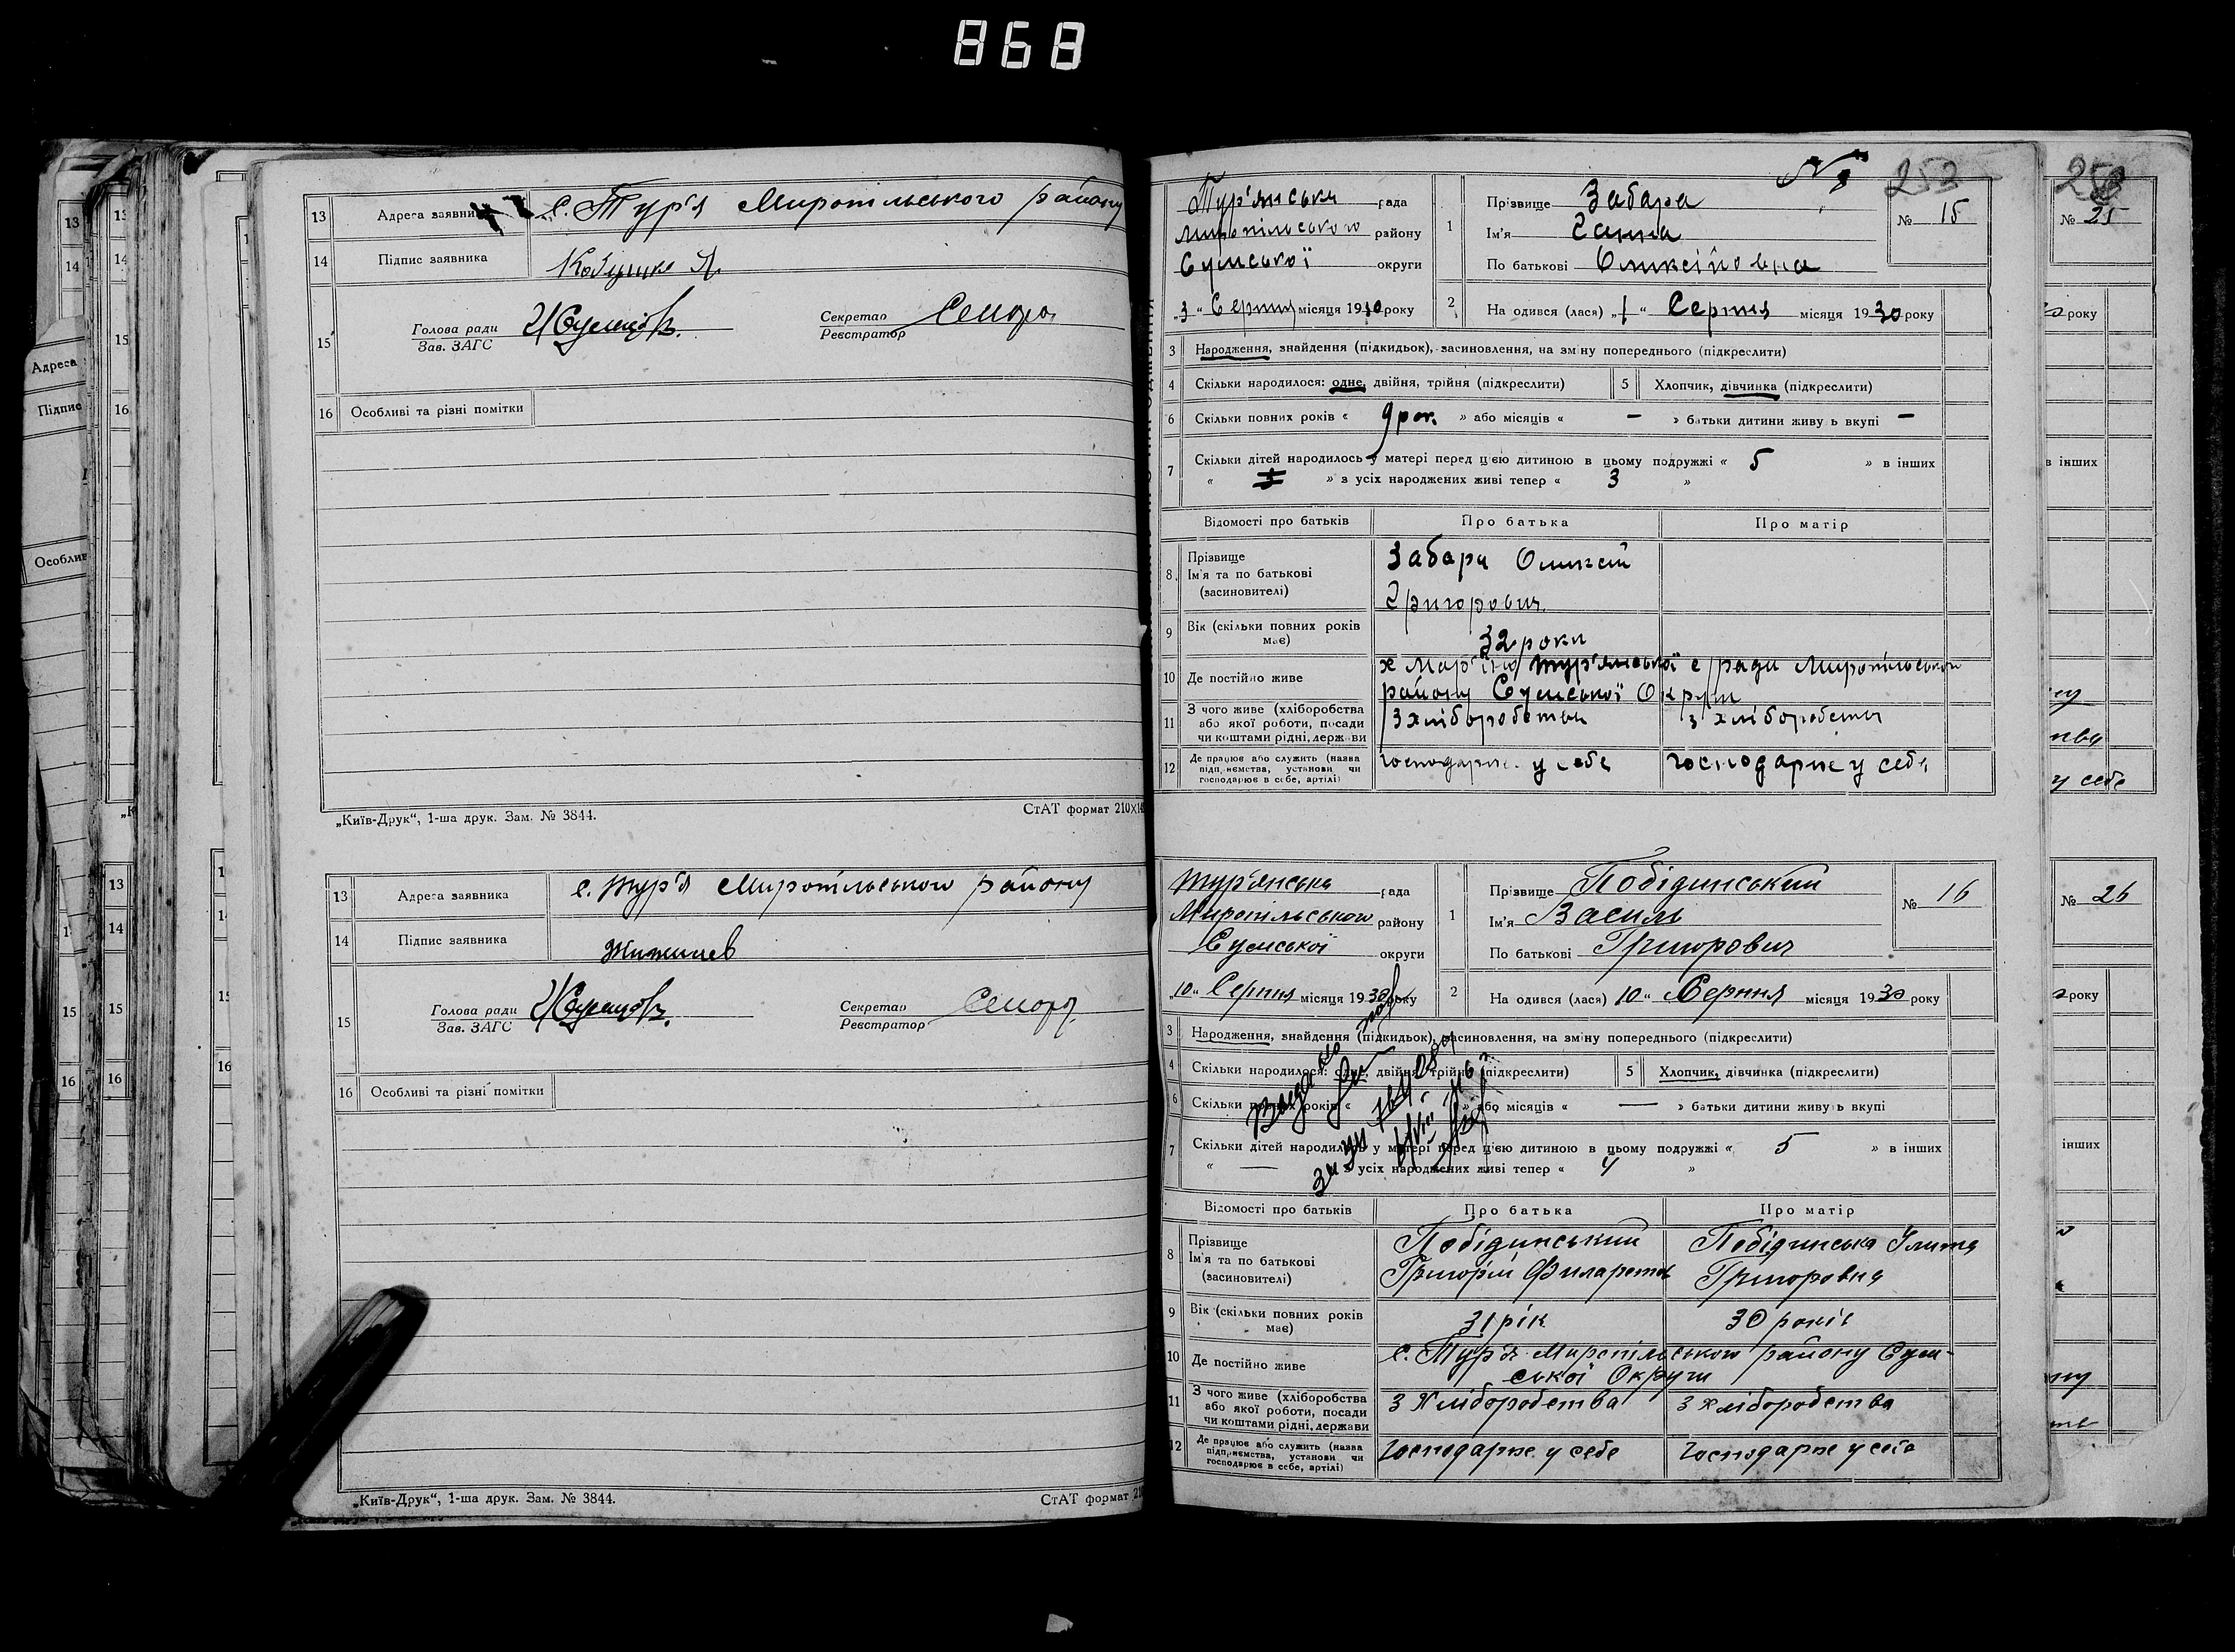 868
13 Адреса заявника с. Тур'я Миропільського району
14 Підпис заявника
15 Голова ради Секретар
Зав. ЗАГС Реєстратор
16 Особливі та різні помітки
„Київ-Друк“, 1-ша друк. Зам. № 3844. СтАТ формат
13 Адреса заявника с. Тур'я Миропільського району
14 Підпис заявника
15 Голова ради Секретар
Зав. ЗАГС Реєстратор
16 Особливі та різні помітки
„Київ-Друк“, 1-ша друк. Зам. № 3844. СтАТ формат
253
Тур'янська рада
Миропільського району
Сумської округи
„3“ Серпня місяця 1930 року
1 Прізвище Забара
Ім'я Ганна
По батькові Оликсіїовна
№ 15
2 На одився (лася) „1“ Серпня місяця 1930 року
3 Народження, знайдення (підкидьок), засиновлення, на зміну попереднього (підкреслити)
4 Скільки народилося: одне, двійня, трійня (підкреслити) 5 Хлопчик, дівчинка (підкреслити)
6 Скільки повних років « 9 рок. » або місяців « — » батьки дитини живу ь вкупі —
7 Скільки дітей народилось у матері перед цією дитиною в цьому подружжі « 5 » в інших
« » з усіх народжених живі тепер « 3 »
Відомості про батьків Про батька Про матір
8 Прізвище
Ім'я та по батькові
(засиновителі)
Забара Оликсій
Григорович
9 Вік (скільки повних років має) 32 роки
10 Де постійно живе х Мар'їно Тур'янської с/ради Миропільського
району Сумської Округи
11 З чого живе (хліборобства або якої роботи, посади чи коштами рідні, держави З хліборобства з хліборобства
12 Де працює або служить (назва підприємства, установи чи господарює в себе, артілі) господарює у себе господарює у себе
Тур'янська рада
Миропільського району
Сумської округи
„10“ Серпня місяця 1930 року
1 Прізвище Побідинський
Ім'я Василь
По батькові Григорович
№ 16
2 На одився (лася) 10 “ Серпня місяця 1930 року
3 Народження, знайдення (підкидьок), засиновлення, на зміну попереднього (підкреслити)
4 Скільки народилося: одне, двійня, трійня (підкреслити) 5 Хлопчик, дівчинка (підкреслити)
6 Скільки повних років « » або місяців « — » батьки дитини живу ь вкупі
7 Скільки дітей народилось у матері перед цією дитиною в цьому подружжі « 5 » в інших
« — » з усіх народжених живі тепер « 4 »
Відомості про батьків Про батька Про матір
8 Прізвище
Ім'я та по батькові
(засиновителі)
Побідинський Побідинська Улита
Григорій Филаретов Григоровна
9 Вік (скільки повних років має) 31 рік 30 років
10 Де постійно живе с. Тур'я Миропільського району Сум-
ської Округи
11 З чого живе (хліборобства або якої роботи, посади чи коштами рідні, держави З Хліборобства З хліборобства
12 Де працює або служить (назва підприємства, установи чи господарює в себе, артілі) господарює у себе господарює у себе
№ 25
року
в інших
у себе
№ 26
року
інших